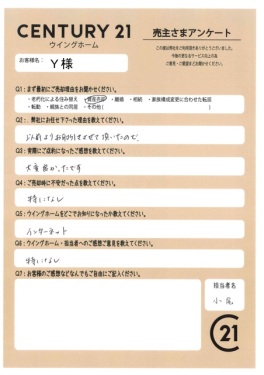 CENTURY 21
ウイングホーム
売主さまアンケート
この度は弊社をご利用頂きありがとうございました。
今後の更なるサービス向上の為
ご意見・ご要望をお聞かせください。
お客様名： Y様
Q1：まず最初にご売却理由をお聞かせください。
・老朽化による住み替え ・資産売却 ・離婚 ・相続 ・家族構成変更に合わせた転居
・転勤 ・親族との同居 ・その他(
Q2： 弊社にお任せ下さった理由を教えてください。
以前よりお取引させて頂いたので
Q3：実際にご成約になったご感想を教えてください。
大変良かったです
Q4：ご売却時に不安だった点を教えてください。
特になし
Q5：ウイングホームをどこでお知りになったか教えてください。
インターネット
Q6：ウイングホーム・担当者へのご感想ご意見を教えてください。
特になし
Q7：お客様のご感想などなんでもご自由にご記入ください。
担当者名
小尾
C21